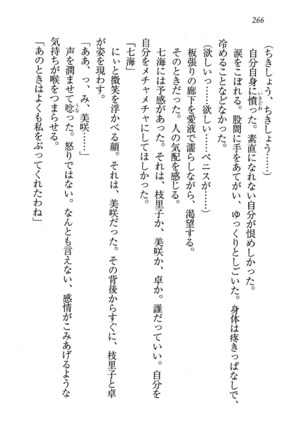 266
(ちきしょう、ちきしょう……)
自分自身に憤った。素直になれない自分が恨めしかった。
涙をこぼれる。股間に手をあてがい、ゆっくりとしごいた。身体は疼きっぱなしで、
冷めることなどなかった。
(欲しいっ……欲しい……ペニスが……)
板張りの廊下を愛液で濡らしながら、渇望する。
そのときだった。人の気配を感じる。
七海には予感があった。それは、枝里子か、美咲か、卓か。誰だっていい。自分を
自分をメチャメチャにしてほしかった。
「七海」
にぃと微笑を浮かべる顔。それは、美咲だった。その背後からすぐに、枝里子と卓
が姿を現わす。
「ああ、っ、み、美咲……」
声を潤ませて唸った。怒りではない。なんとも言えない、感情がこみあげるような
気持ちが喉をつまらせる。
「あのときはよくも私をぶってくれたわね」